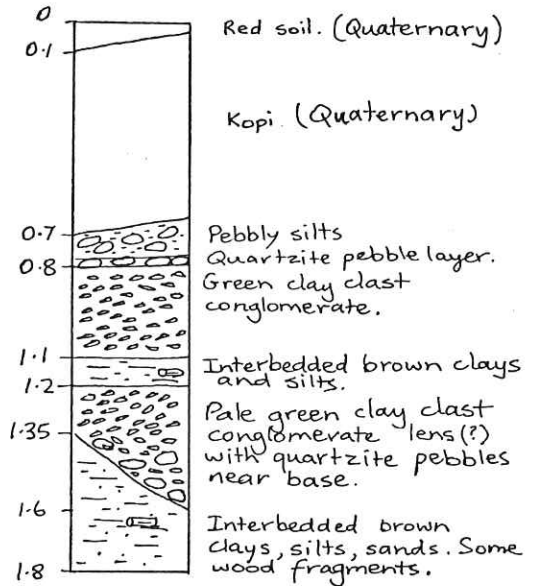 0
Red soil. (Quaternary)
0.1
Kopi (Quaternary)
0.7
Pebbly silts
Quartzite pebble layer.
0.8
Green clay clast
conglomerate.
1.1
Interbedded brown clays
and silts.
1.2
Pale green clay clast
1.35
conglomerate lens(?)
with quartzite pebbles
near base.
1.6
Interbedded brown
clays, silts, sands. Some
wood fragments.
1.8